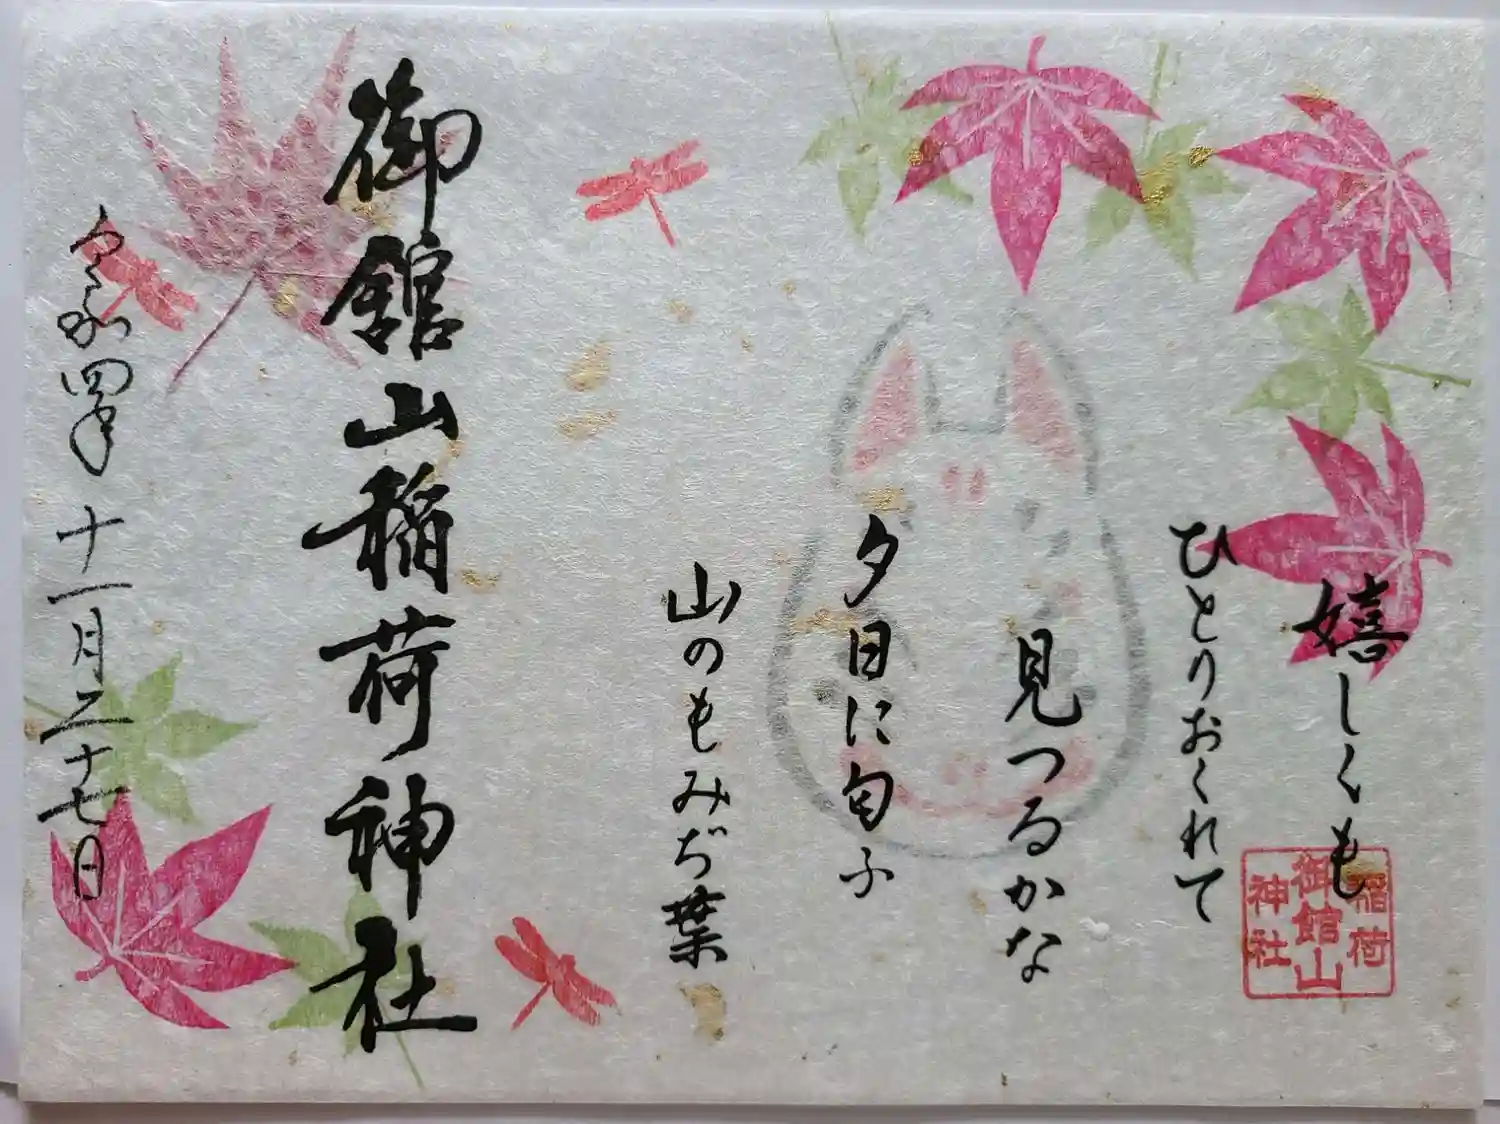 嬉しくも
ひとりおくれて
見つるかな
夕日に匂ふ
山のもみぢ葉
稲荷
御館山
神社
御館山稲荷神社
令和四年十一月二十七日